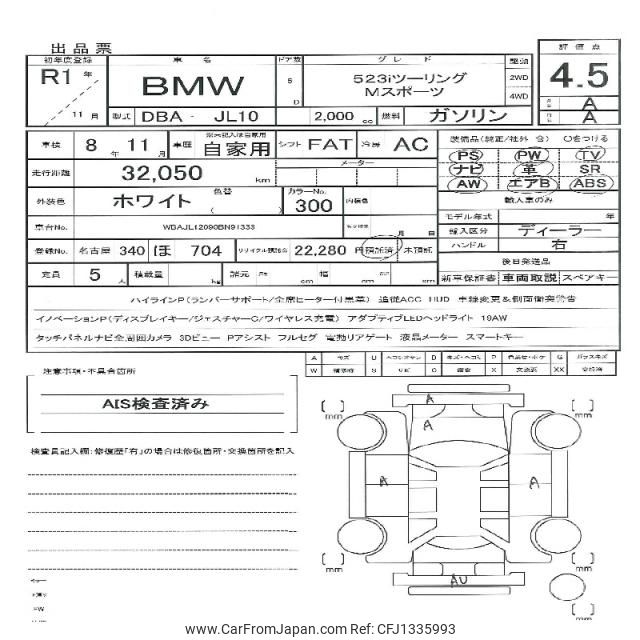 出品票
初年度登録 車名 ドア数 グレード 駆動 評価点
R1年 BMW 5 D 523iツーリング 2WD 4.5
11月 Mスポーツ 4WD A
型式 DBA - JL10 2,000 cc 燃料 ガソリン A
車検 8年11月 車歴 自家用 シフト FAT 冷房 AC 装備品(純正/社外 含) 〇をつける
走行距離 32,050 km メーター PS PW TV
ナビ 革 SR
外装色 ホワイト 色替 ( ) カラーNo. 300 内装色 AW エアB ABS
輸入車のみ
車台No. WBAJL12090BN91333 月 日 モデル年式 年
登録No. 名古屋 340 ほ 704 リサイクル預託金 22,280 円 預託済 未預託 輸入区分 ディーラー
ハンドル 右
定員 5人 積載量 kg 諸元 長 cm 幅 cm 高 cm 後日発送品
新車保証書 車両取説 スペアキー
ハイラインP(ランバーサポート/全席ヒーター付黒革) 追従ACC HUD 車線変更&側面衝突警告
イノベーションP(ディスプレイキー/ジェスチャーC/ワイヤレス充電) アダプティブLEDヘッドライト 19AW
タッチパネルナビ全周囲カメラ 3Dビュー Pアシスト フルセグ 電動リアゲート 液晶メーター スマートキー
A キズ U D P G
W S C X XX
注意事項・不具合箇所
AIS検査済み
検査員記入欄:修復歴『有』の場合は修復箇所・交換箇所を記入
A
A
A A
AU
[ ] mm
[ ] mm
[ ] mm
[ ] mm
[ ] mm
www.CarFromJapan.com Ref: CFJ1335993